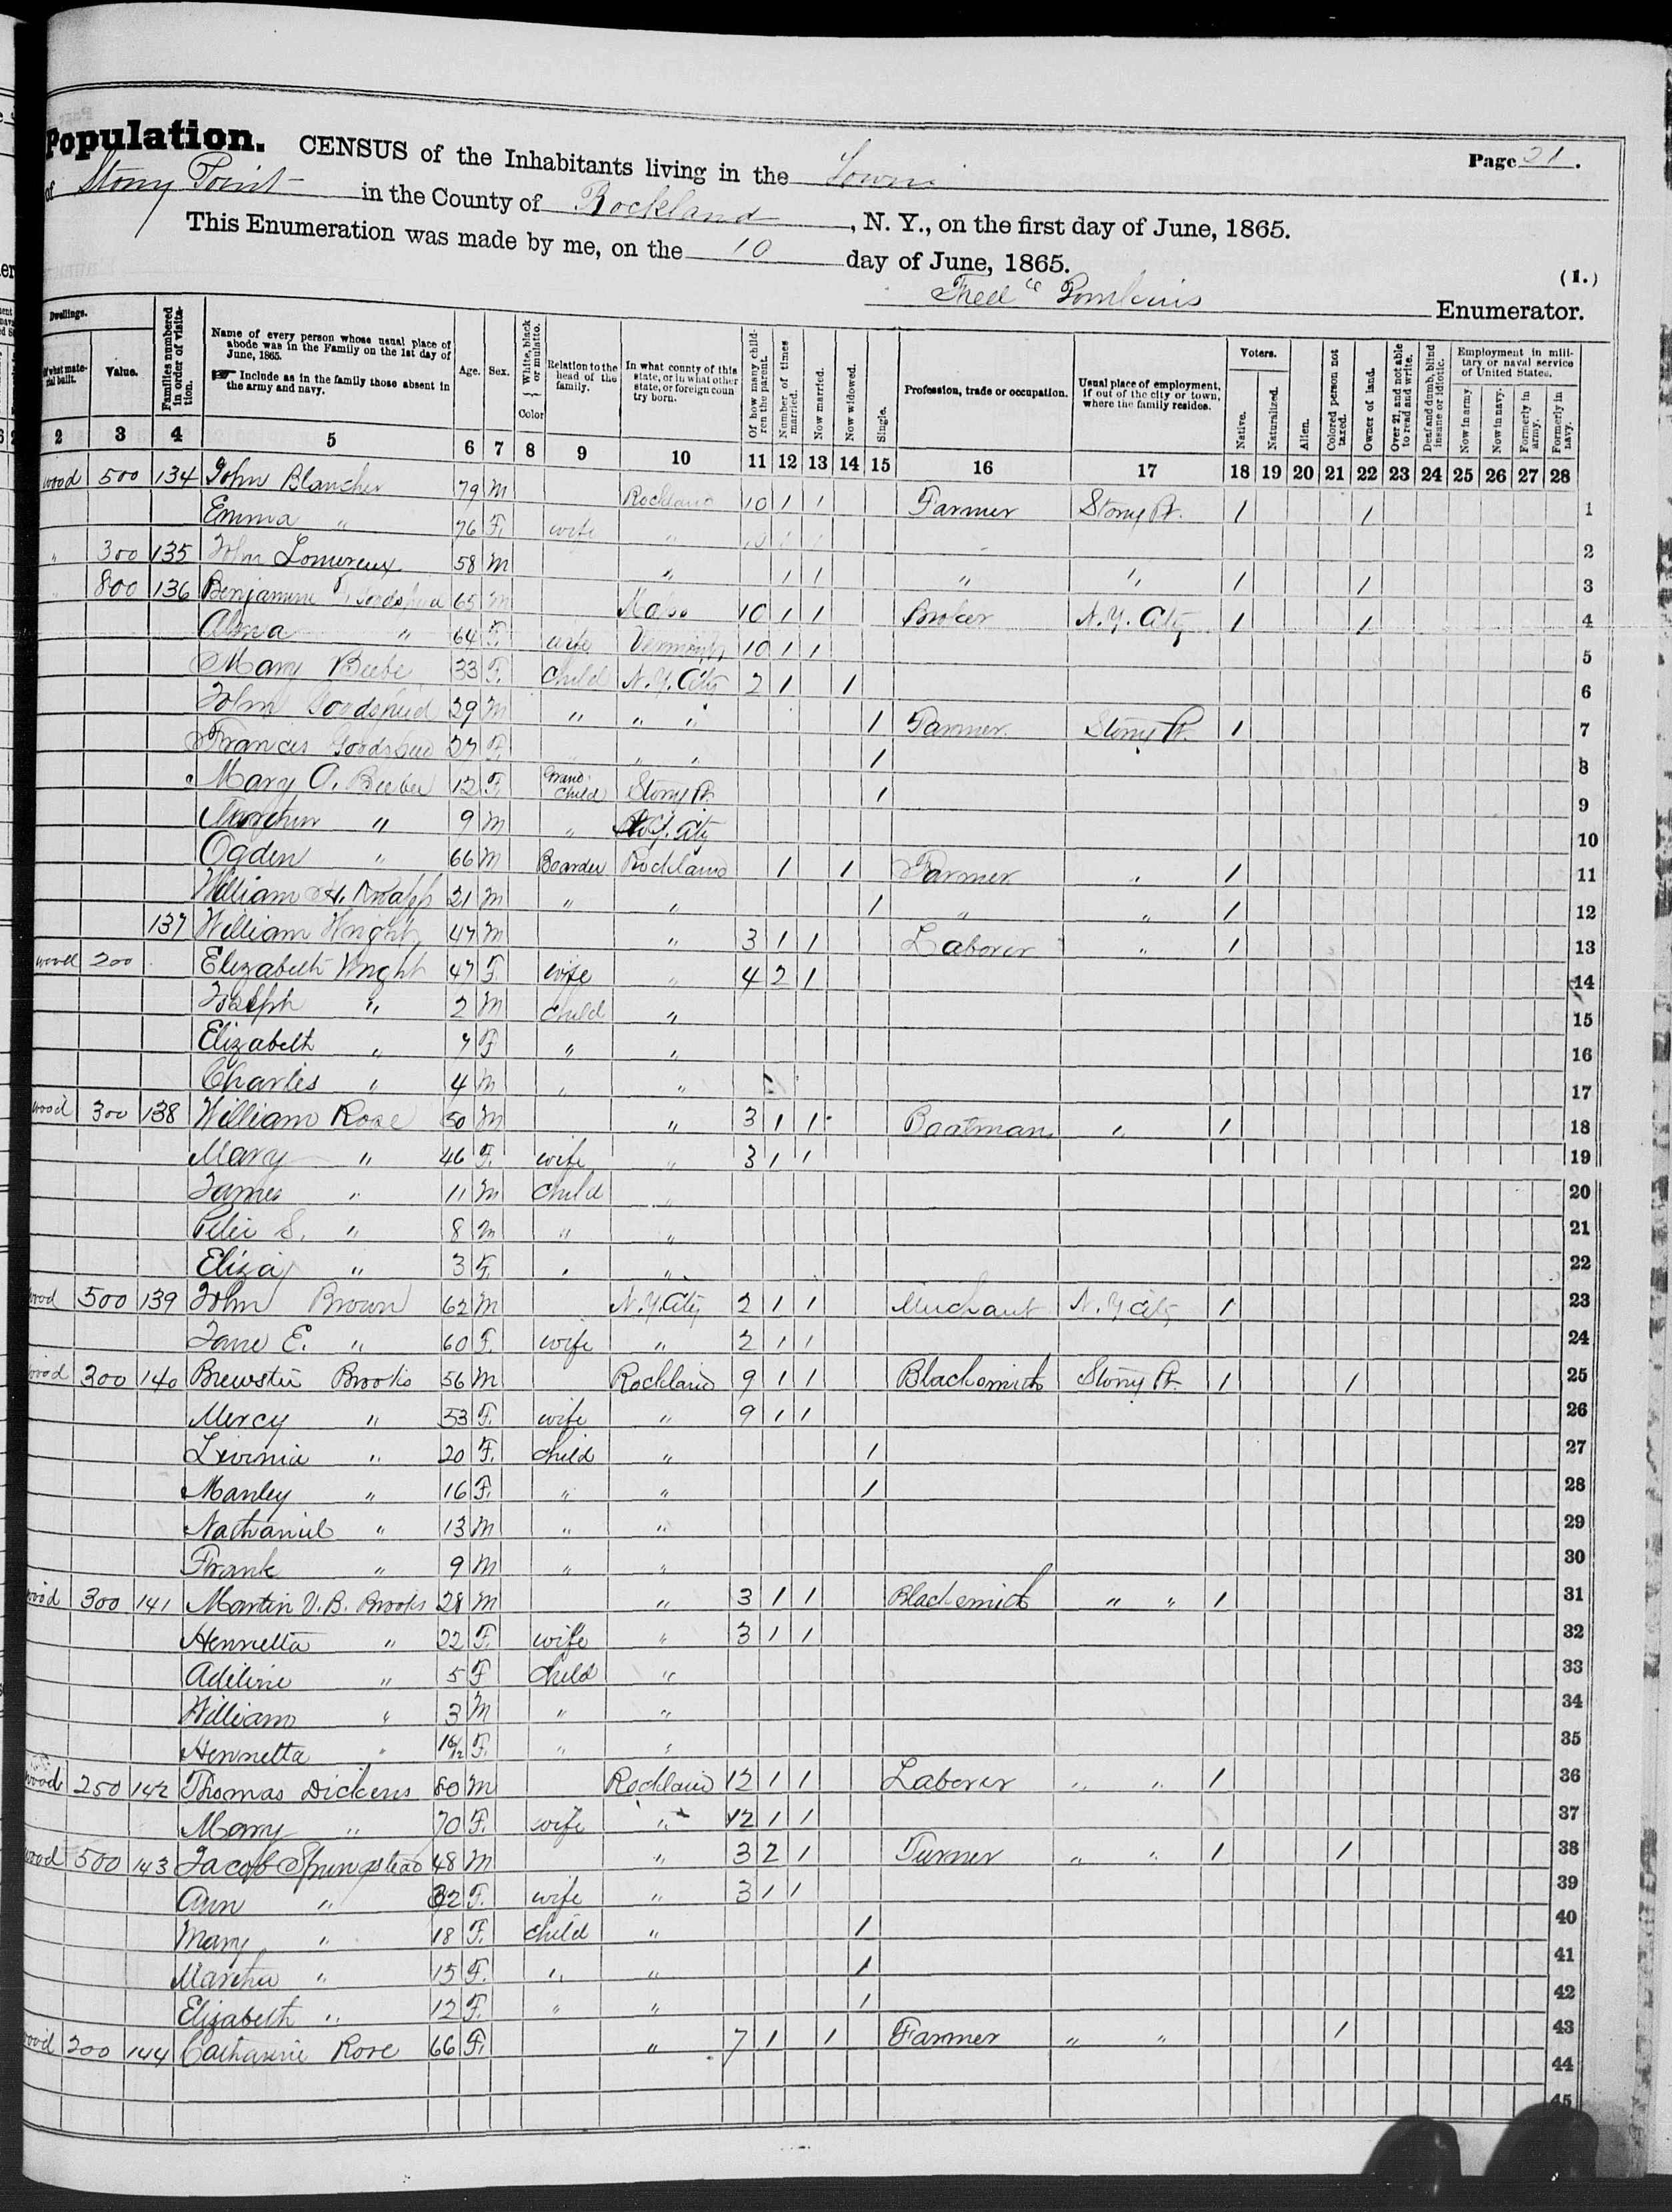 Population. CENSUS of the Inhabitants living in the Town Page 21.
of Stony Point in the County of Rockland, N. Y., on the first day of June, 1865.
This Enumeration was made by me, on the 10 day of June, 1865.
(1.)
Fred Enumerator.
Dwellings. Of what material built. Value. Families numbered in order of visitation. Name of every person whose usual place of abode was in the Family on the 1st day of June, 1865. Include as in the family those absent in the army and navy. Age. Sex. White, black or mulatto. Color Relation to the head of the family. In what county of this state, or in what other state, or foreign country born. Of how many children the parent. Number of times married. Now married. Now widowed. Single. Profession, trade or occupation. Usual place of employment, if out of the city or town, where the family resides. Voters. Native. Naturalized. Alien. Colored person not taxed. Owner of land. Over 21, and not able to read and write. Deaf and dumb, blind insane or idiotic. Employment in military or naval service of United States. Now in army Now in navy. Formerly in army. Formerly in navy.
2 3 4 5 6 7 8 9 10 11 12 13 14 15 16 17 18 19 20 21 22 23 24 25 26 27 28
wood 500 134 John Blancher 79 M Rockland 10 1 1 Farmer Stony Pt. 1 1 1
Emma " 76 F. wife " 10 1 1 2
" 300 135 John 58 M " 1 1 " " 1 1 3
" 800 136 Benjamin 65 M Mass 10 1 1 Broker N.Y. City 1 1 4
Alma " 64 F. wife Vermont 10 1 1 5
Mary Beebe 33 F. Child N.Y. City 2 1 1 6
John Goodspeed 29 M " " " 1 Farmer Stony Pt. 1 7
Frances Goodspeed 27 F. " " 1 8
Mary O. Beebee 12 F. Grand Child Stony Pt. 1 9
" 9 M " N.Y. City 10
Ogden " 66 M Boarder Rockland 1 1 Farmer " 1 11
William H. Knapp 21 M " " 1 " " 1 12
137 William Wright 47 M " 3 1 1 Laborer " 1 13
wood 200 Elizabeth Wright 47 F. wife " 4 2 1 14
Joseph " 2 M Child " 15
Elizabeth " 7 F " " 16
Charles " 4 M " " 17
wood 300 138 William Rose 50 M " 3 1 1 Boatman " 1 18
Mary " 46 F. wife " 3 1 1 19
James " 11 M Child " 20
Peter S. " 8 M " " 21
Eliza " 3 F. " " 22
wood 500 139 John Brown 62 M N.Y. City 2 1 1 Merchant N.Y City 1 23
Jane E. " 60 F. wife " 2 1 1 24
wood 300 140 Brewster Brooks 56 M Rockland 9 1 1 Blacksmith Stony Pt. 1 1 25
Mercy " 53 F. wife " 9 1 1 26
Livinia " 20 F. Child " 1 27
Manley " 16 F. " " 1 28
Nathaniel " 13 M " " 29
Frank " 9 M " " 30
wood 300 141 Martin V. B. Brooks 28 M " 3 1 1 Blacksmith " " 1 31
Henrietta " 22 F. wife " 3 1 1 32
Adeline " 5 F Child " 33
William " 3 M " " 34
Henrietta " F. " " 35
wood 250 142 Thomas Dickens 80 M Rockland 12 1 1 Laborer " " 1 36
Mary " 70 F. wife " 12 1 1 37
wood 500 143 Jacob Springstead 48 M " 3 2 1 Turner " " 1 1 38
Ann " 32 F. wife " 3 1 1 39
Mary " 18 F. Child " 1 40
Martha " 15 F. " " 1 41
Elizabeth " 12 F. " " 1 42
wood 200 144 Catharine Rose 66 F. " 7 1 1 Farmer " " 1 43
44
45